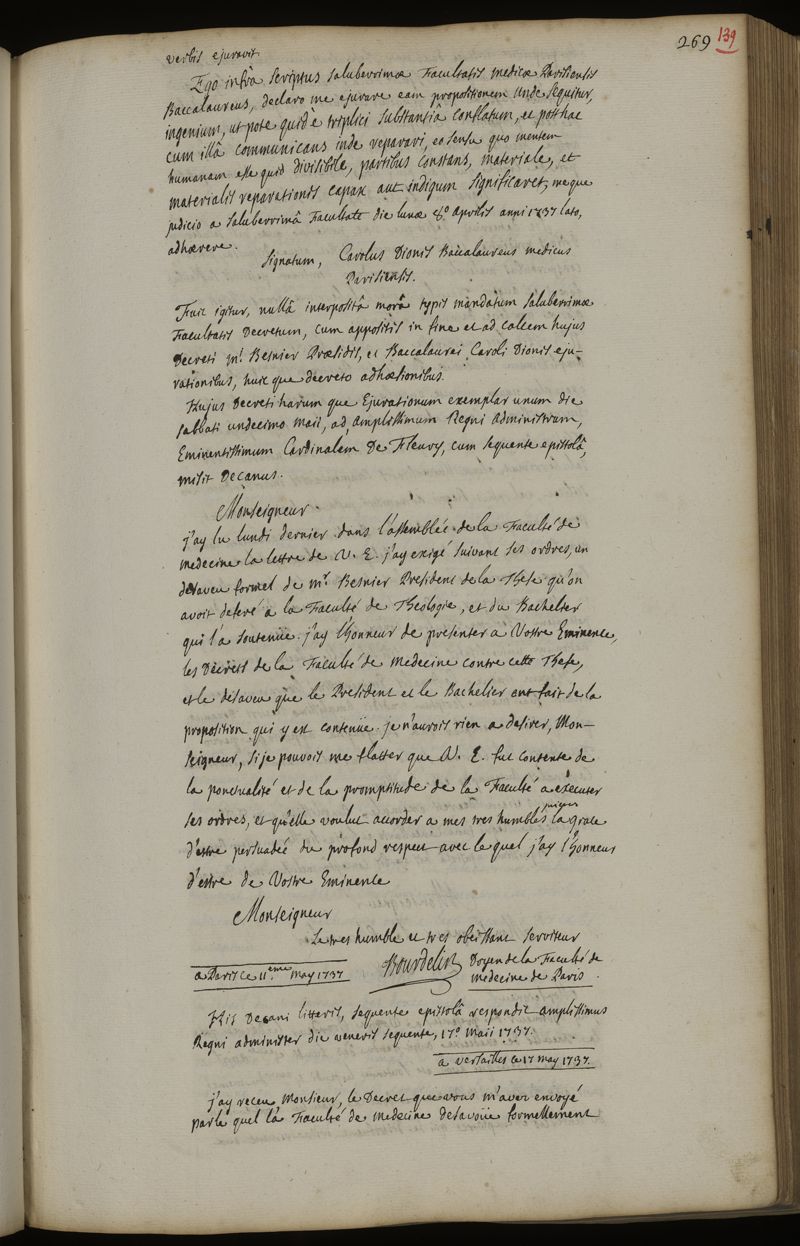 269 139
verbis ejuravit.
Ego infrà scriptus saluberrimæ Facultatis medicæ Parisiensis
Baccalaureus, declaro me ejurare eam propositionem unde sequitur,
ingenium, ut pote quid è triplici substantiâ conflatum, et post hac
cum illâ communicans inde reparari, eo sensu quo mentem
humanam esse quid divisibile, partibus constans, materiale, et
materialis reparationis capax aut indigum significaret, meque
judicio a saluberrimâ Facultate die lunæ 8.º aprilis anni 1737 lato,
adhærere.
Signatum, Carolus Dionis Baccalaureus medicus
Parisiensis.
Fuit igitur, nullâ interpositâ morâ typis mandatum saluberrimæ
Facultatis Decretum, cum appositis in fine et ad calcem hujus
Decreti m.i Besnier Præsidis, et Baccalaurei Caroli Dionis eju-
rationibus, huic que decreto adhæsionibus.
Hujus Decreti harum que Ejurationum exemplar unum die
sabbati undecimo maii, ad amplissimum Regni administrum,
Eminentissimum Cardinalem De Fleury, cum sequente epistolâ,
misit Decanus.
Monseigneur
j'ay lu lundi dernier dans l'assemblée de la Faculté de
medecine la lettre de V. E. j'ay exigé suivant ses ordres, un
desaveu formel de m.r Besnier President de la These qu'on
avoit deferé a la Faculté de Theologie, et du Bachelier
qui l'a soutenüe. j'ay l'honneur de presenter a Vostre Eminence,
les Decrets de la Faculté de medecine contre cette These,
et le desaveu que le President et le Bachelier ont fait de la
proposition qui y est contenüe. je n'aurois rien a desirer, Mon-
seigneur, si je pouvois me flatter que V. E. fut contente de
la ponctualité et de la promptitude de la Faculté a executer
ses ordres, et qu'elle voulut accorder a mes tres humbles la grace
d'estre persuadée du profond respect avec le quel j'ay l'honneur
d'estre de Vostre Eminence
Monseigneur
Le tres humble et tres obeissant serviteur
a Paris ce 11.eme may 1737 Bourdelin Doyen de la Faculté de
medecine de Paris.
His Decani litteris, sequente epistolâ respondit amplissimus
Regni administer die veneris sequente, 17.º maii 1737.
a versailles ce 17 may 1737.
j'ay receu monsieur, le Decret que vous m'avez envoyé
par le quel la Faculté de medecine desavoüe formellement